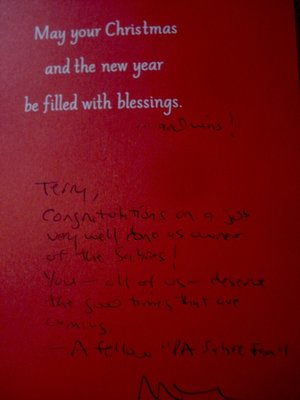 May your Christmas
and the new year
be filled with blessings.
Terry,
Congratulations on a job
very well done as owner
of the Sabres!
You — all of us — deserve
the good times that are
coming.
— A fellow "PA Sabre Fan"